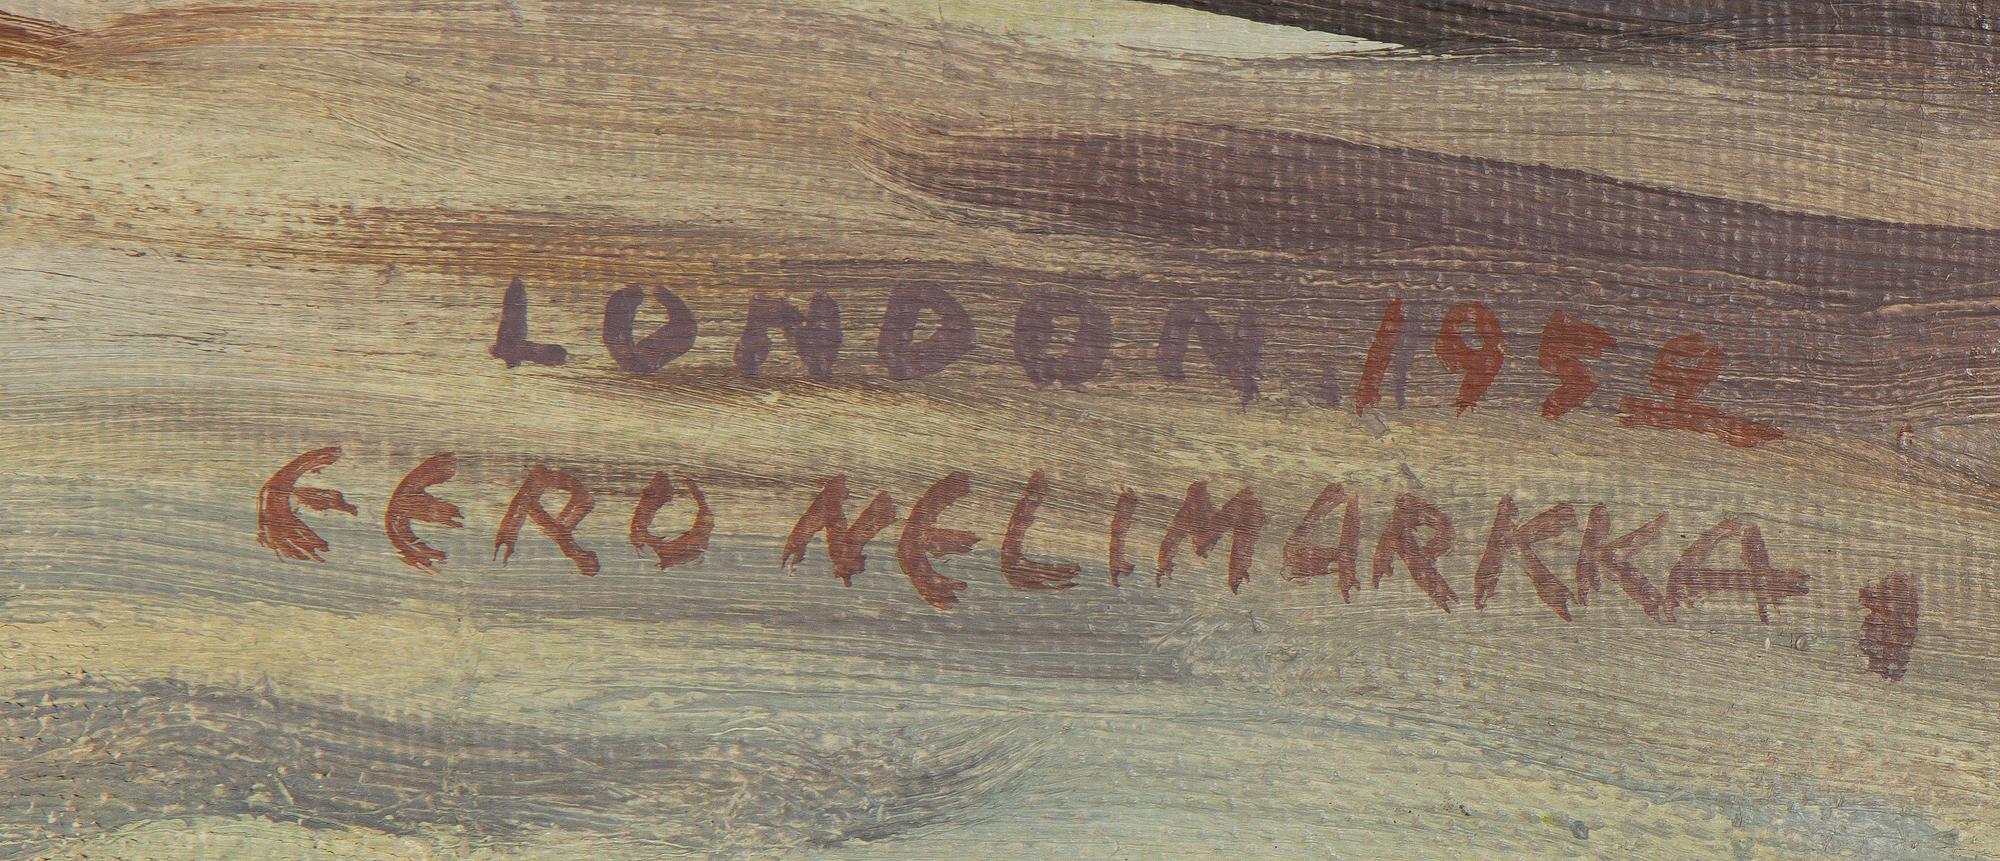 LONDON. 1952
EERO NELIMARKKA,